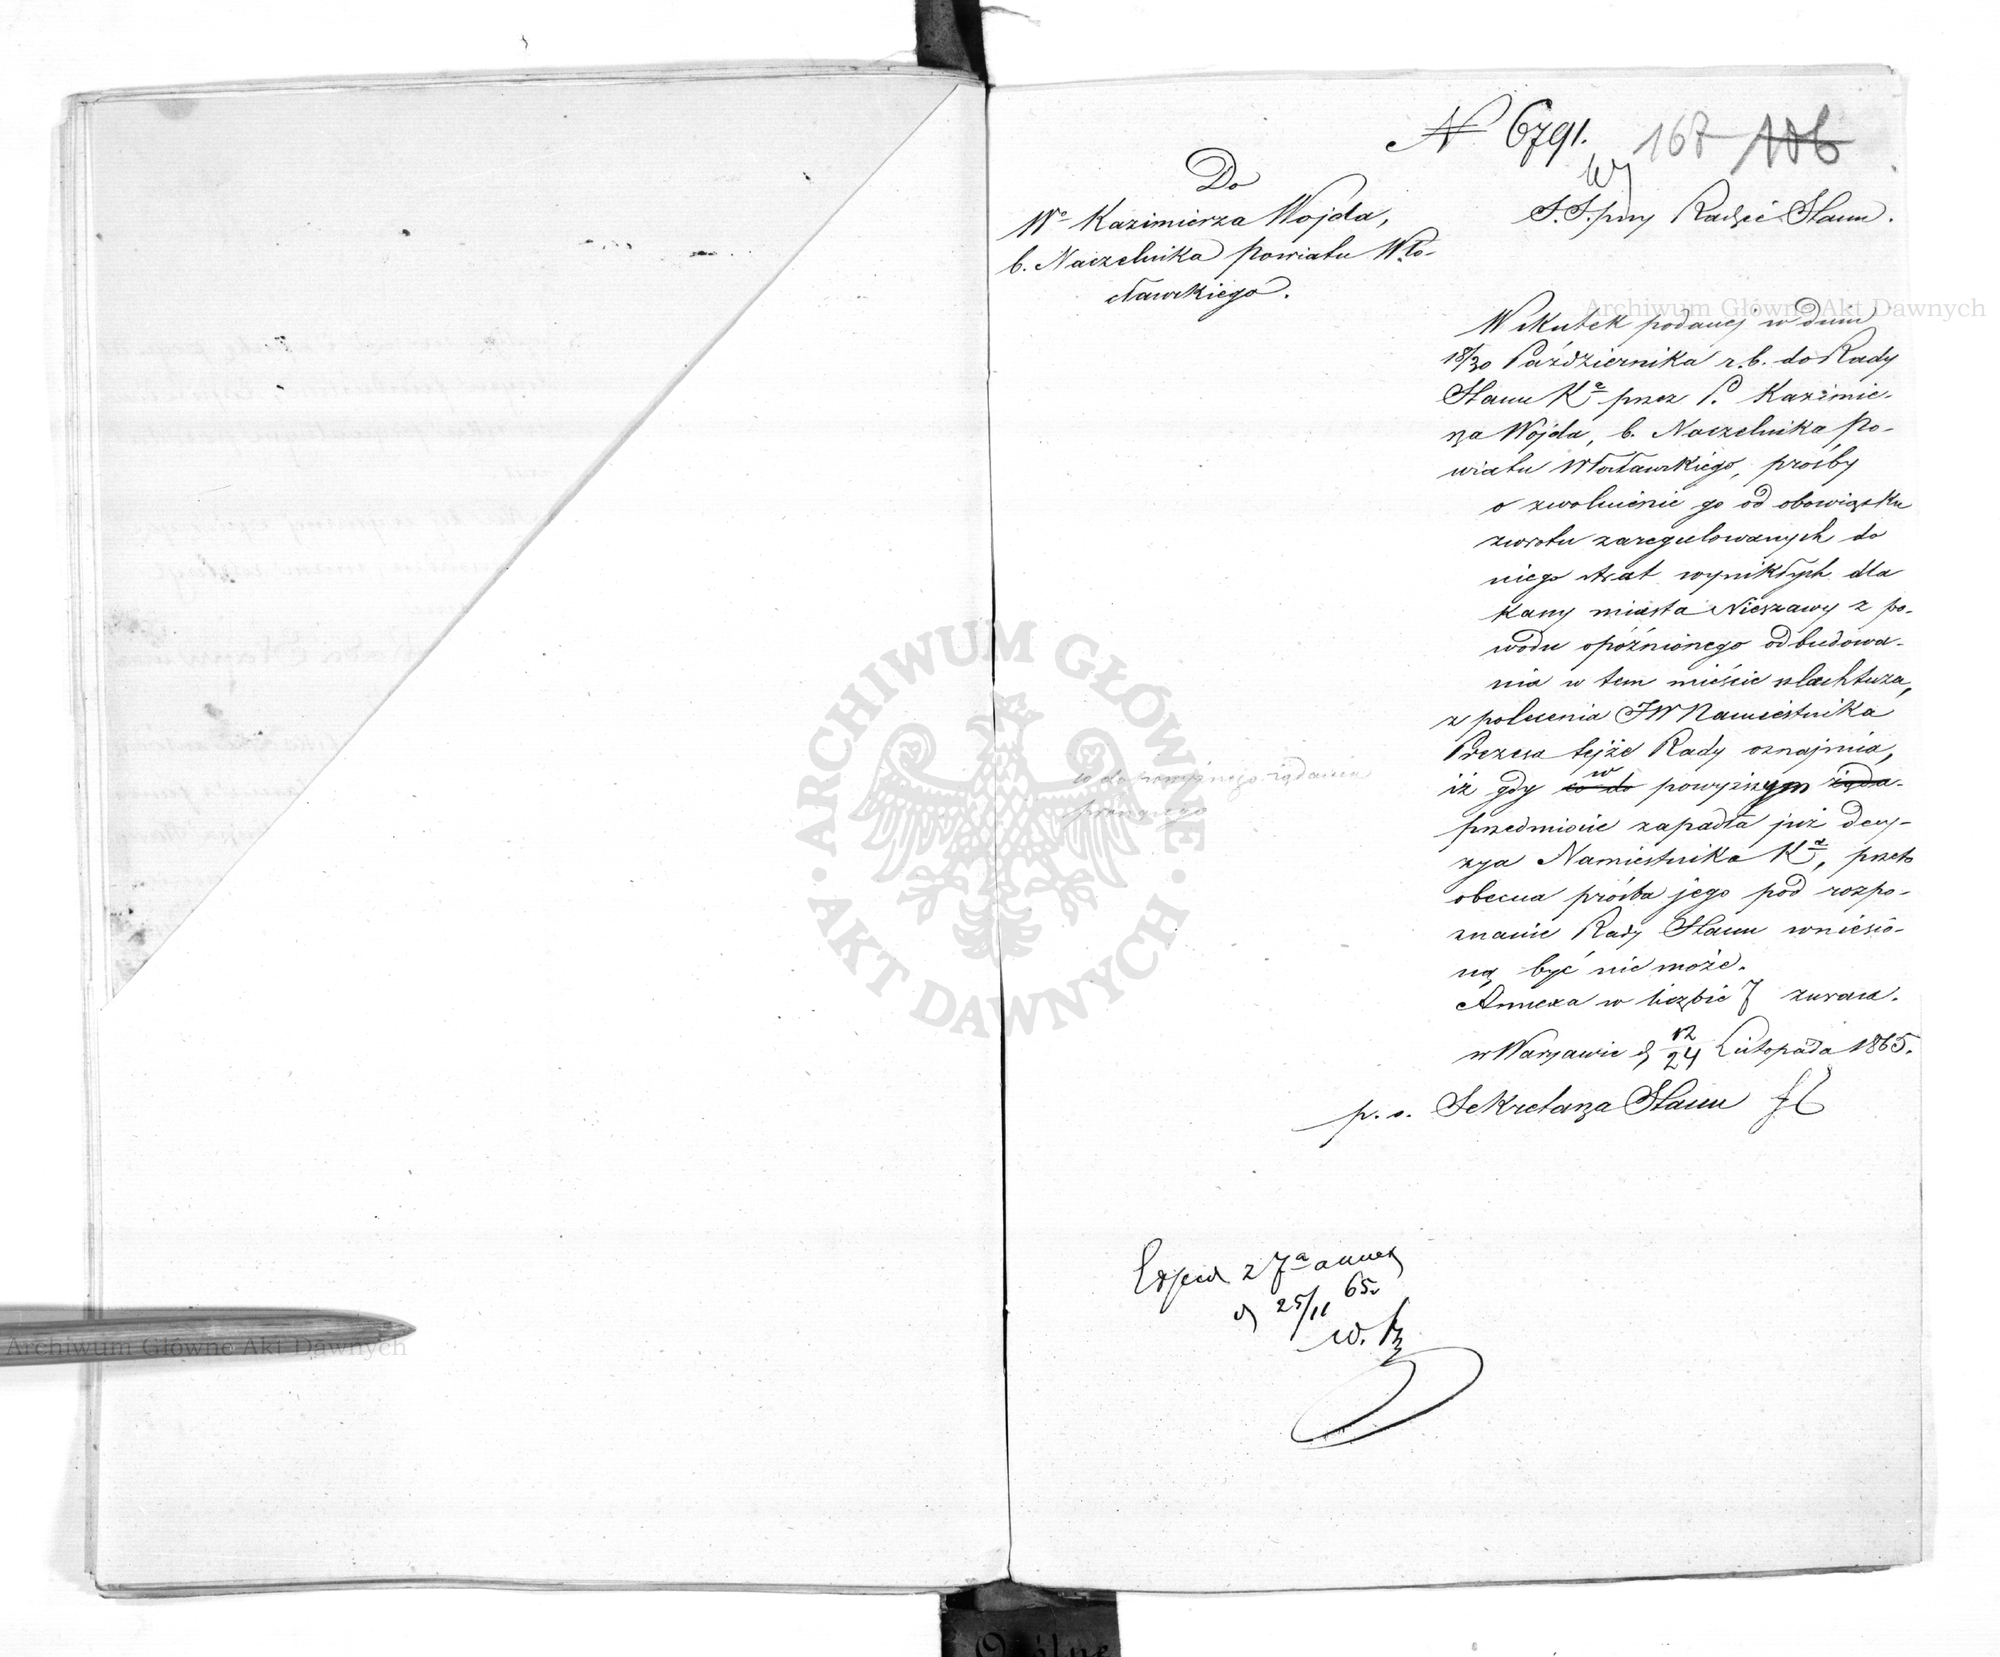 N 6791. 167 186
Do
Wo Kazimierza Wojda,
b. Naczelnika Powiatu Wło-
cławskiego.
S. S. przy Radzie Stanu.
Wskutek podanej w dniu
18/30 Października r. b. do Rady
Stanu Ka przez P. Kazimie-
rza Wojda, b. Naczelnika Po-
wiatu Włocławskiego, prośby
o zwolnienie go od obowiązku
zwrotu zaregulowanych do
niego strat wynikłych dla
kassy miasta Nieszawy z po-
wodu opóźnionego odbudowa-
nia w tem mieście szlachtuza,
z polecenia JW Namiestnika
Prezesa tejże Rady oznajmia,
iż gdy co do w powyższym żąda-
przedmiocie zapadła już decy-
zya Namiestnika Ka, przeto
obecna prośba jego pod rozpo-
znanie Rady Stanu wniesio-
ną być nie może.
Annexa w liczbie 7 zwraca.
w Warszawie d 12/24 Listopada 1865.
p. o. Sekretarza Stanu
co do powyższego żądania
Exped z 7a annex
d 25/11 65r
Archiwum Główne Akt Dawnych
Archiwum Główne Akt Dawnych
ARCHIWUM GŁÓWNE
AKT DAWNYCH